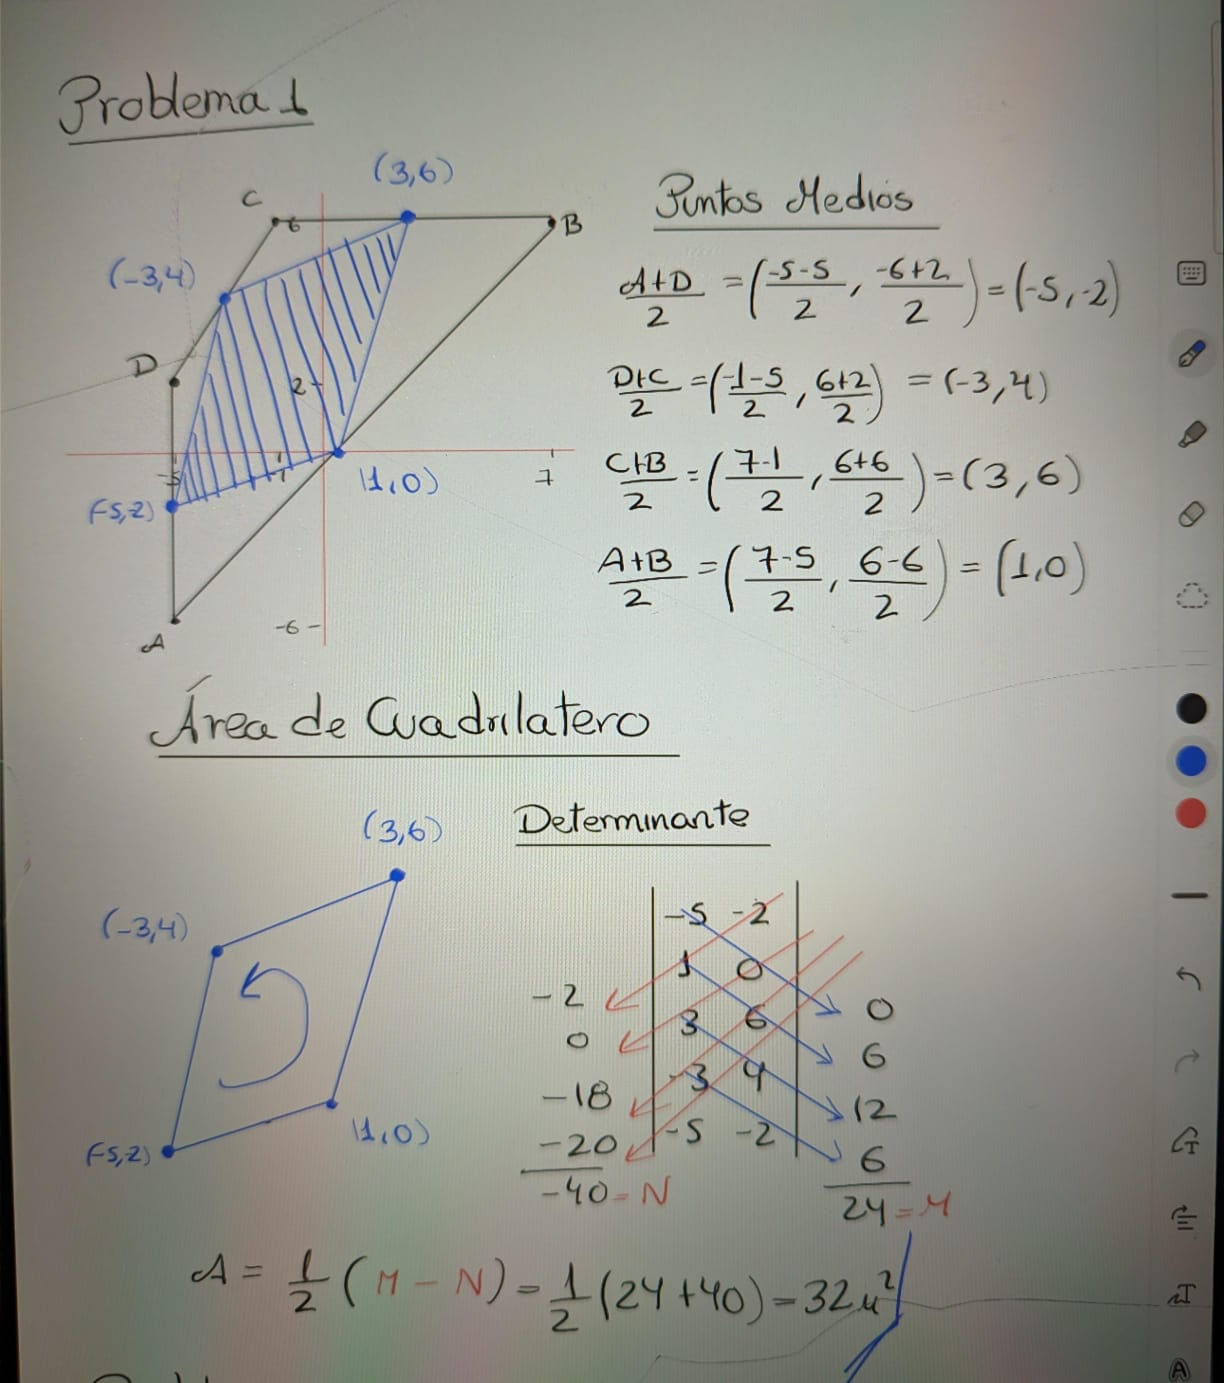 Problema 1
(3,6)
C
6
B
(-3,4)
D
2
-5
-1
7
(-5,2)
(1,0)
-6
A
Puntos Medios
A+D/2 = (-5-5/2, -6+2/2) = (-5,-2)
D+C/2 = (-1-5/2, 6+2/2) = (-3,4)
C+B/2 = (7-1/2, 6+6/2) = (3,6)
A+B/2 = (7-5/2, 6-6/2) = (1,0)
Área de Cuadrilatero
(3,6)
(-3,4)
(-5,2)
(1,0)
Determinante
-5 -2
1 0
3 6
-3 4
-5 -2
-2
0
-18
-20
-40 = N
0
6
12
6
24 = M
A = 1/2 (M - N) = 1/2 (24+40) = 32u²